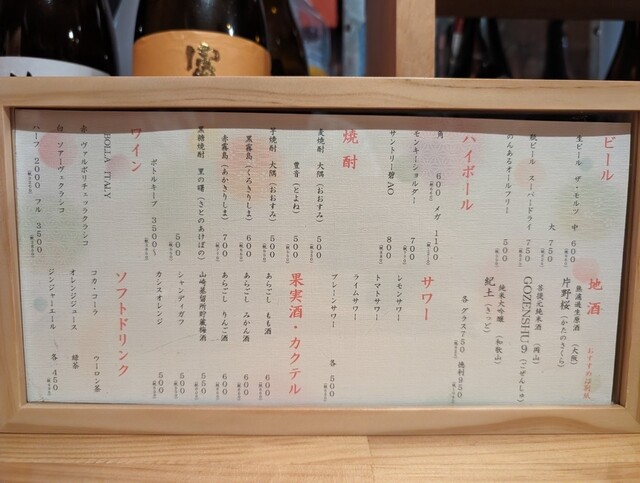 ビール
生ビール ザ・モルツ 中 600
大 750
瓶ビール スーパードライ 750
のんあるオールフリー 500
ハイボール
角 600 メガ 1100
モンキーショルダー 700
サントリー碧AO 800
焼酎
麦焼酎 大隅(おおすみ) 500
豊音(とよね) 500
芋焼酎 大隅(おおすみ) 500
黒霧島(くろきりしま) 600
赤霧島(あかきりしま) 700
黒糖焼酎 里の曙(さとのあけぼの) 500
ボトルキープ 3500〜
ワイン
BOLLA ITALY
赤 ヴァルポリチェッラクラシコ
白 ソアーヴェクラシコ
ハーフ 2000 フル 3500
地酒 おすすめは別紙
無濾過生原酒 (大阪)
片野桜(かたのさくら)
菩提元純米酒 (岡山)
GOZENSHU 9(ごぜんしゅ)
純米大吟醸 (和歌山)
紀土(きっど)
各 グラス750 徳利950
サワー
レモンサワー
トマトサワー
ライムサワー
プレーンサワー 各 500
果実酒・カクテル
あらごし もも酒 600
あらごし みかん酒 600
あらごし りんご酒 600
山崎蒸留所貯蔵梅酒 550
シャンディガフ 500
カシスオレンジ 500
ソフトドリンク
コカ・コーラ ウーロン茶
オレンジジュース 緑茶
ジンジャーエール 各 450